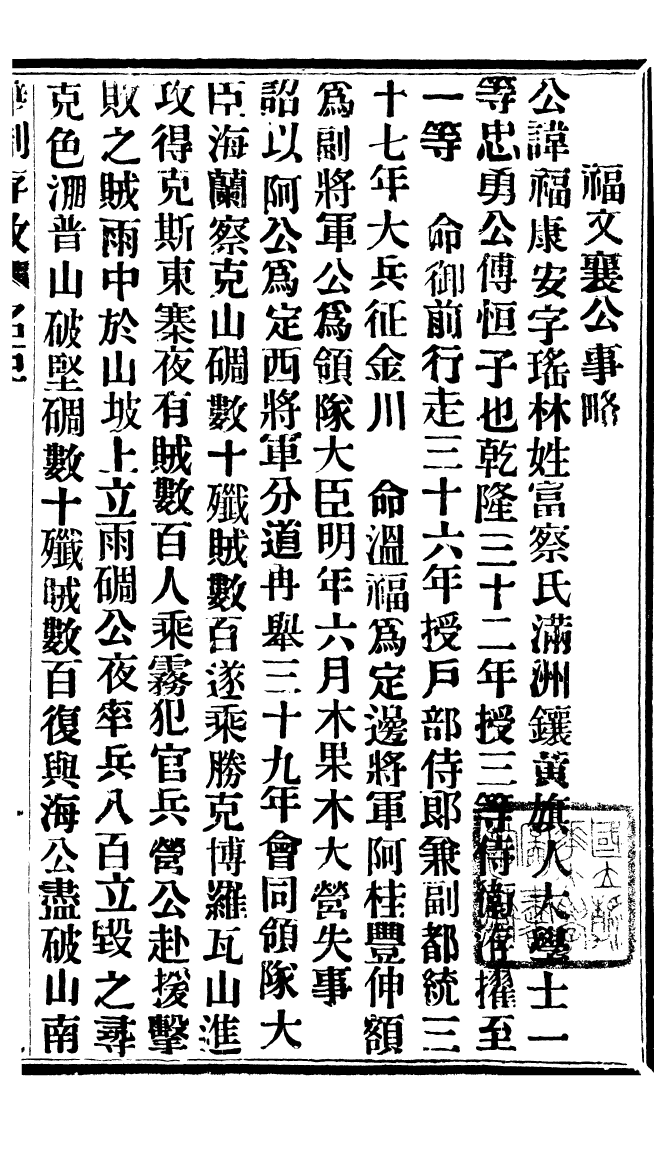 福文襄公事略
公諱福康安字瑤林姓富察氏滿洲鑲黃旗人大學士一
等忠勇公傅恒子也乾隆三十二年授三等侍衛洊擢至
一等　命御前行走三十六年授戶部侍郎兼副都統三
十七年大兵征金川　命溫福爲定邊將軍阿桂豐伸額
爲副將軍公爲領隊大臣明年六月木果木大營失事
詔以阿公爲定西將軍分道冉舉三十九年會同領隊大
臣海蘭察克山碉數十殲賊數百遂乘勝克博羅瓦山進
攻得克斯東寨夜有賊數百人乘霧犯官兵營公赴援擊
敗之賊雨中於山坡上立雨碉公夜率兵八百立毀之尋
克色淜普山破堅碉數十殲賊數百復與海公盡破山南